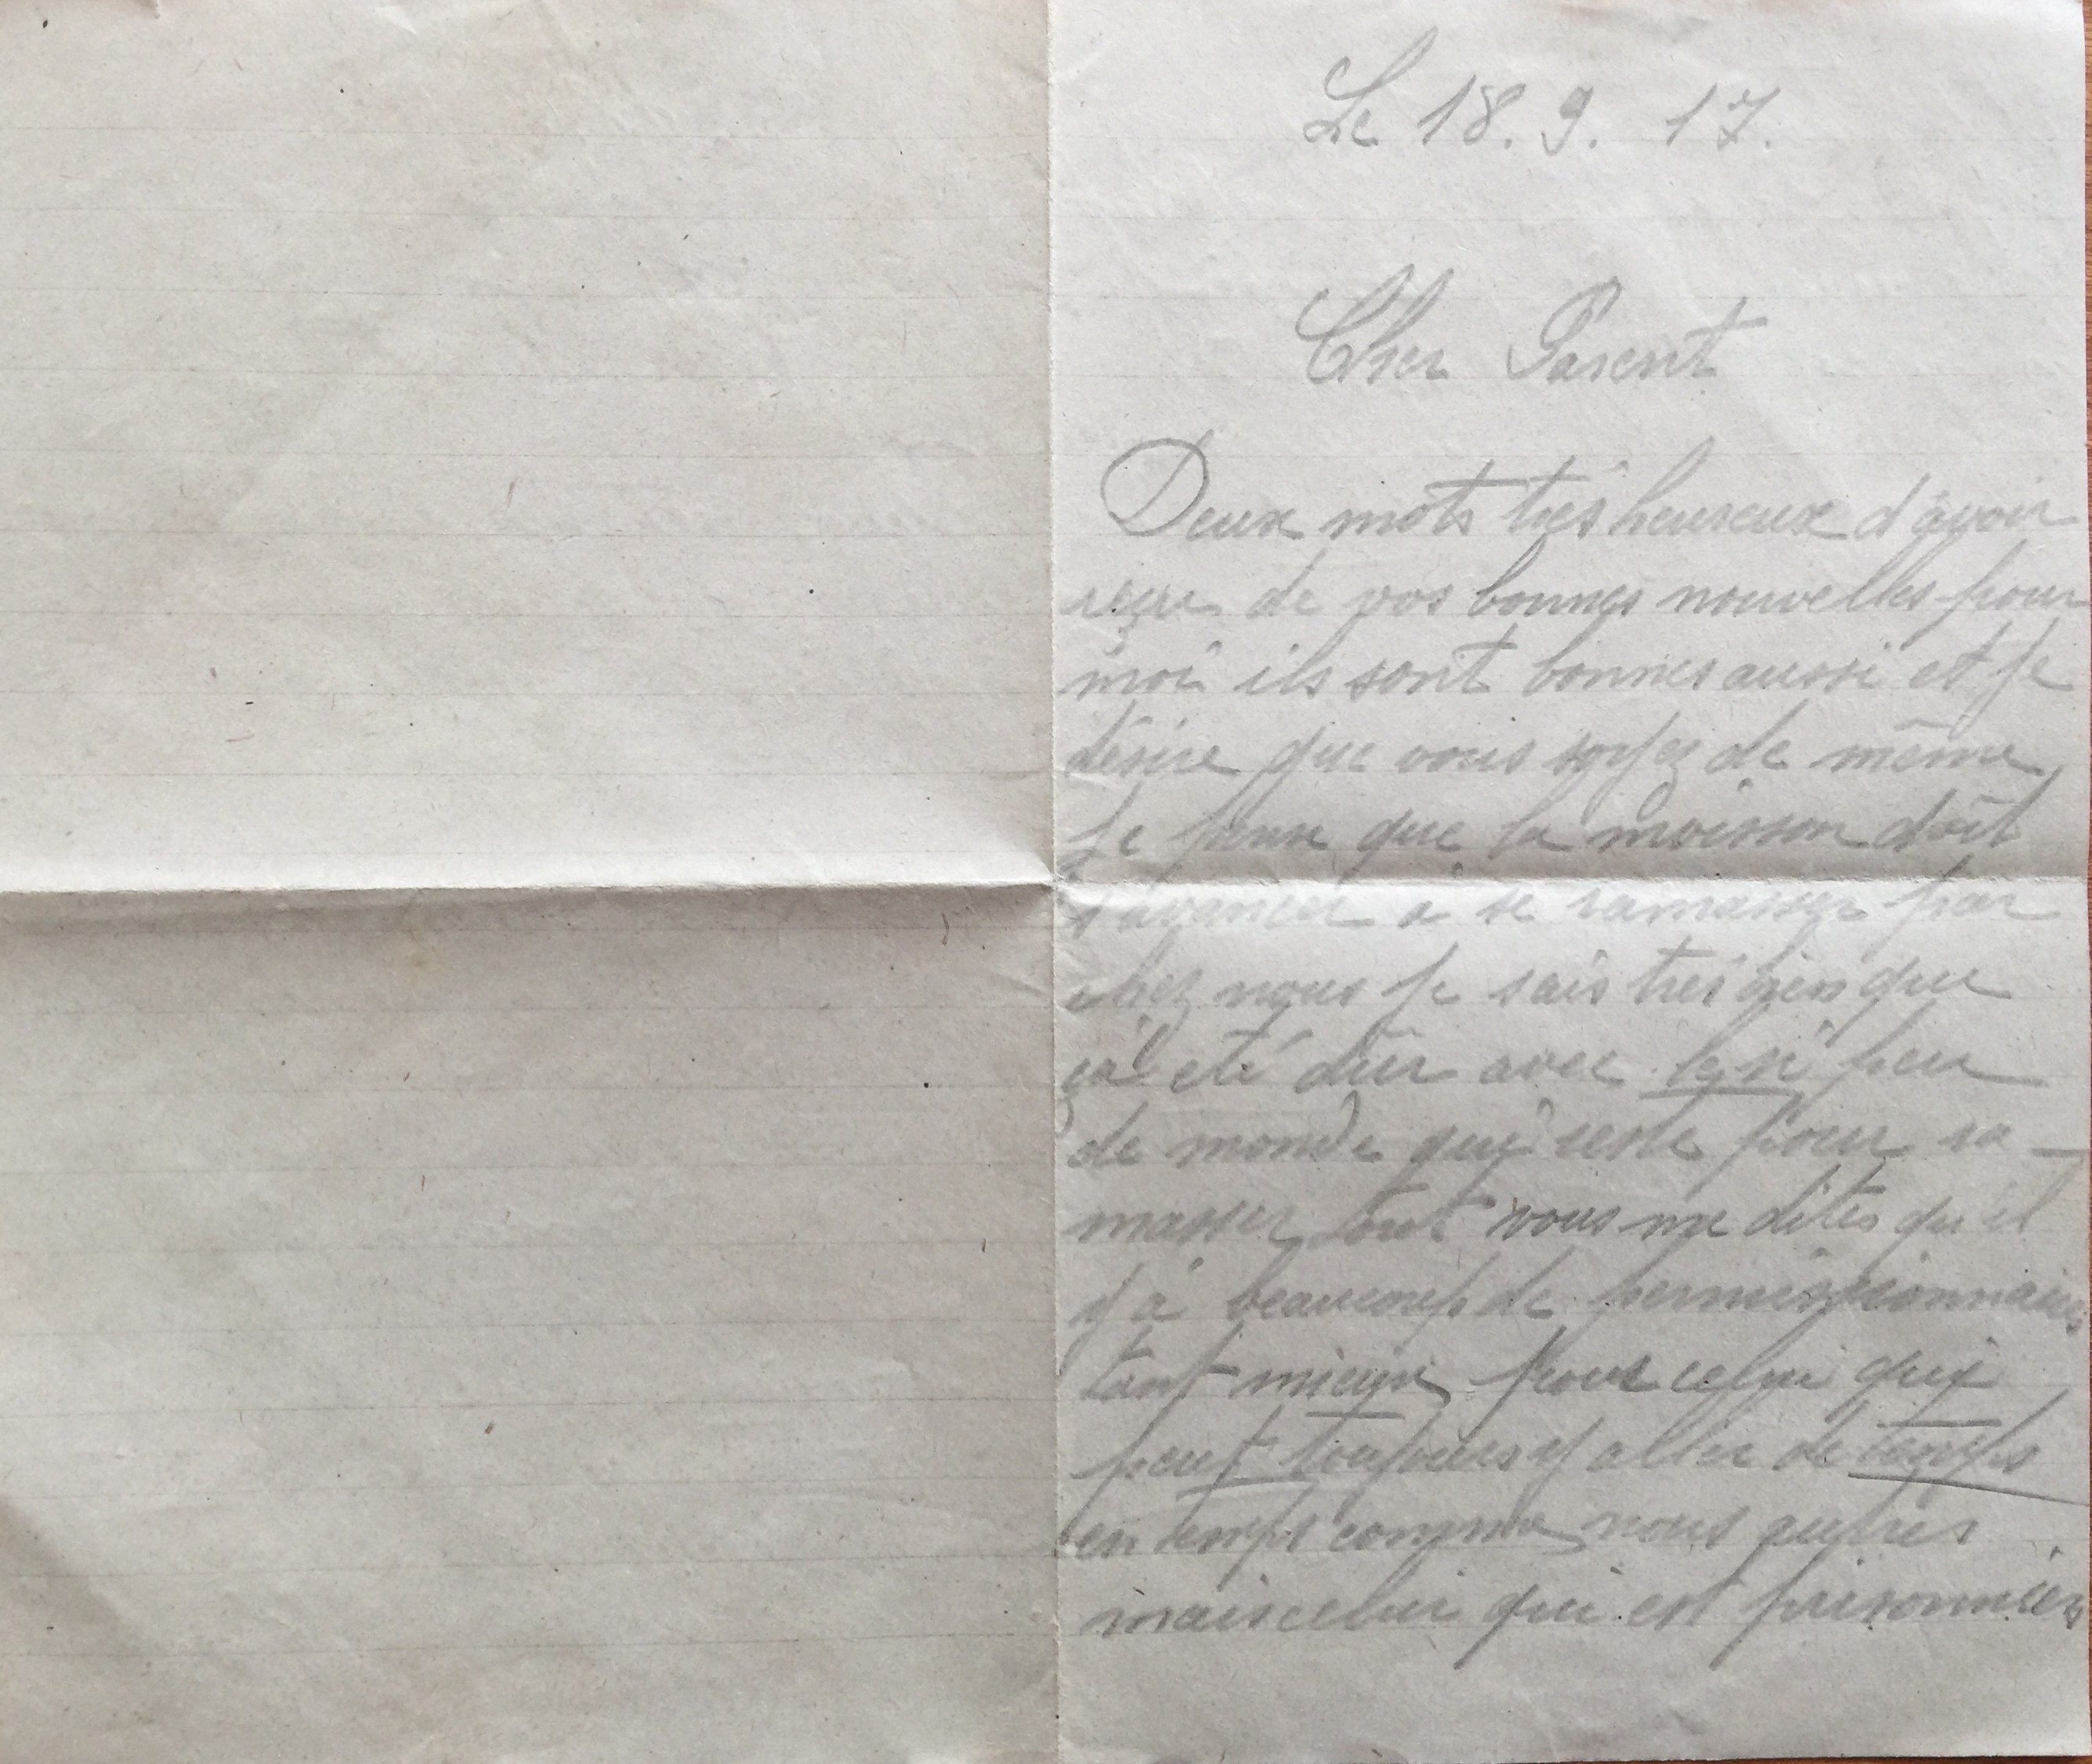 Le 18. 9. 17.
Cher Parent
Deux mots très heureux d'avoir
reçu de vos bonnes nouvelles pour
moi ils sont bonnes aussi et je
désire que vous soyez de même
Je pense que la moisson doit
s'avancer à se ramasser par
chez nous je sais très bien que
ça été dûr avec le si peu
de monde qui reste pour ra-
masser tout vous me dites qu'il
y a beaucoup de permissionnaires
tant mieux pour celui qui
peut toujours y aller de temps
en temps comme nous autres
mais celui qui est prisonnier